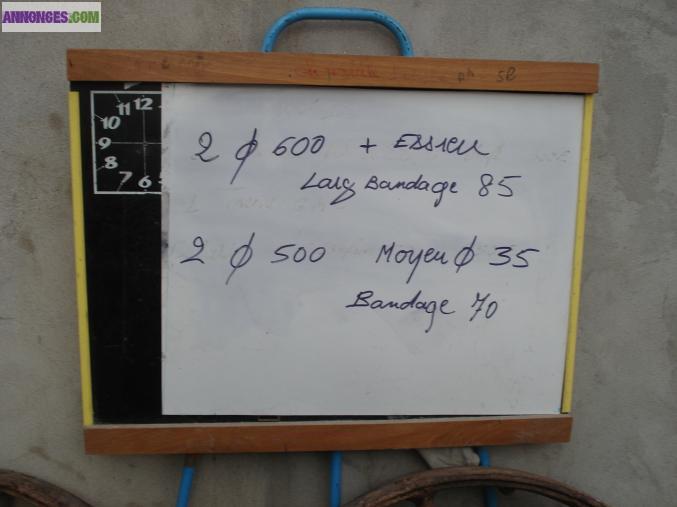 ANNONCES.COM
5B
11 12
10
9
8
7 6 5
2 ϕ 600 + ESSIEU
Larg Bandage 85
2 ϕ 500 Moyeu ϕ 35
Bandage 70